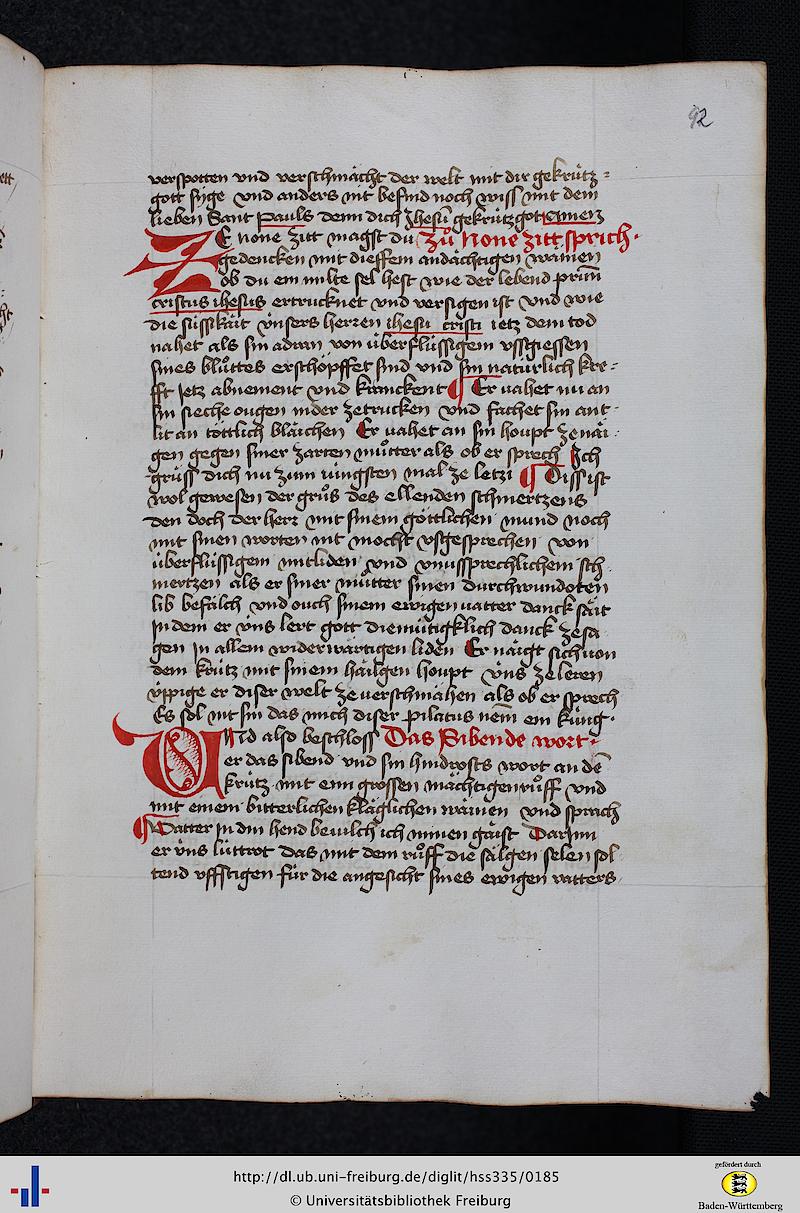 92
verspotten vnd verschmächt der welt mit dir gekrütz=
gott syge vnd anders nit befind noch wiss mit dem
lieben Sant Pauls denn dich Jhesū gekrützgotten
ZE none zitt magst du Zů None zitt sprich·
gedencken mit dieffem andächtigen wainen
ob du ein milte sel hest wie der lebend
cristus ihesus ertrucknet vnd versigen ist vnd wie
die süssikäit vnsers herren ihesu cristi ietz dem tod
nahet als sin adran von überflüssigem vssgiessen
sines blůttes erschöpffet sind vnd sin natürlich kre=
fft jetz abnement vnd kranckent ¶ Er vahet nu an
sin sieche ougen nider zetrucken vnd fachet sin ant
lit an töttlich blaichen Er vahet an sin houpt zenäi
gen gegen siner zarten můtter als ob er sprech Ich
grüss dich nu zum iüngsten mal ze letzi ¶ Diss ist
wol gewesen der grůs des ellenden schmertzens
den doch der herr mit sinem göttlichen mund noch
mit sinen worten nit mocht vsgesprechen von
überflüssigem mitliden vnd vnussprechlichem sch
mertzen als er siner můtter sinen durchwundoten
lib befalch vnd ouch sinem ewigen vatter danck säit
Jn dem er vns lert gott diemütigklich danck zesa
gen Jn allem widerwärtigen liden Er näigt sich von
dem krütz mit sinem häilgen houpt vns zeleren
üppige er diser welt ze verschmähen als ob er sprech
Es sol nit sin das mich diser pilatus nem ein küng·
Vnd also beschloss Das Sibende wort·
er das sibend vnd sin hindrosts wort an dē
krütz mit einn grossen mächtigen růff vnd
mit einem bitterlichen kläglichen wainen vnd sprach
¶ Vatter Jn din hend bevilch ich minen gäist Darinn
er vns lüttrot das mit dem růff die sälgen selen sol
tend vffstigen für die angesicht sines ewigen vatters
http://dl.ub.uni-freiburg.de/diglit/hss335/0185
© Universitätsbibliothek Freiburg
gefördert durch
Baden-Württemberg